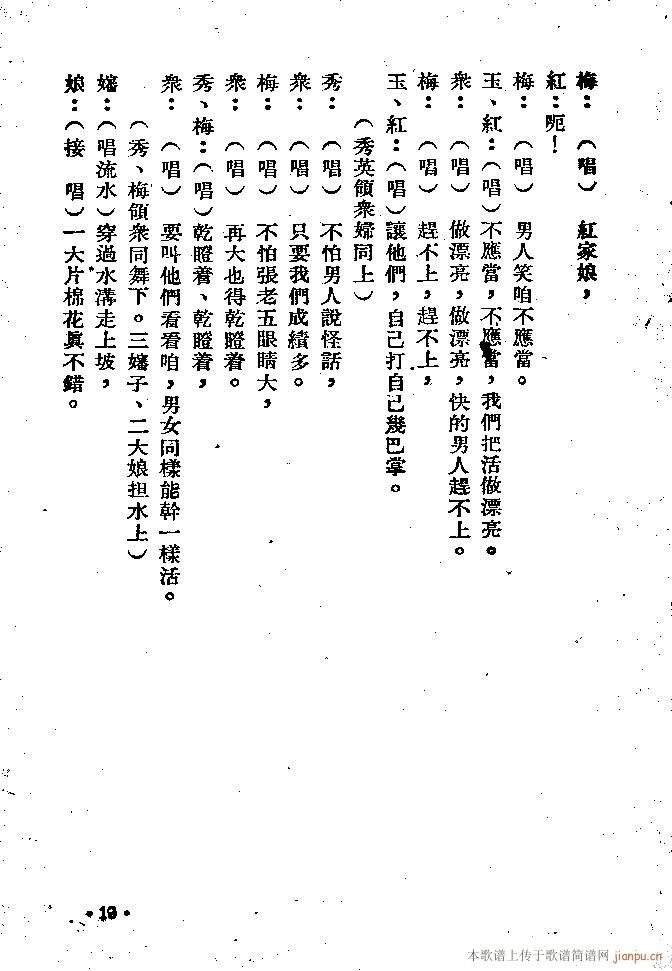 梅:(唱) 紅家娘,
紅:呃!
梅:(唱) 男人笑咱不應當。
玉、紅:(唱)不應當,不應當,我們把活做漂亮。
衆:(唱) 做漂亮,做漂亮,快的男人趕不上。
梅:(唱) 趕不上,趕不上,
玉、紅:(唱)讓他們,自己打自己幾巴掌。
(秀英領衆婦同上)
秀:(唱) 不怕男人說怪話,
衆:(唱) 只要我們成績多。
梅:(唱) 不怕張老五眼睛大,
衆:(唱) 再大也得乾瞪着。
秀、梅:(唱)乾瞪着、乾瞪着,
衆:(唱) 要叫他們看看咱,男女同樣能幹一樣活。
(秀、梅領衆同舞下。三嬸子、二大娘担水上)
嬸:(唱流水)穿過水溝走上坡,
娘:(接 唱)一大片棉花眞不錯。
·19·
本歌谱上传于歌谱简谱网
jianpu.cn